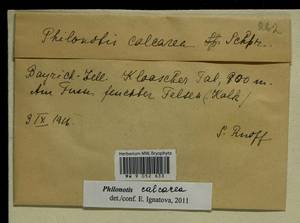 262
Philonotis calcarea Schpr.
Bayrisch-Zell. Kloascher Tal, 900 m.
Am Fusse feuchter Felsen (Kalk)
S. Ruoff
Herbarium MW, Bryophyta
MW 9 052 633
Philonotis calcarea
det./conf. E. Ignatova, 2011